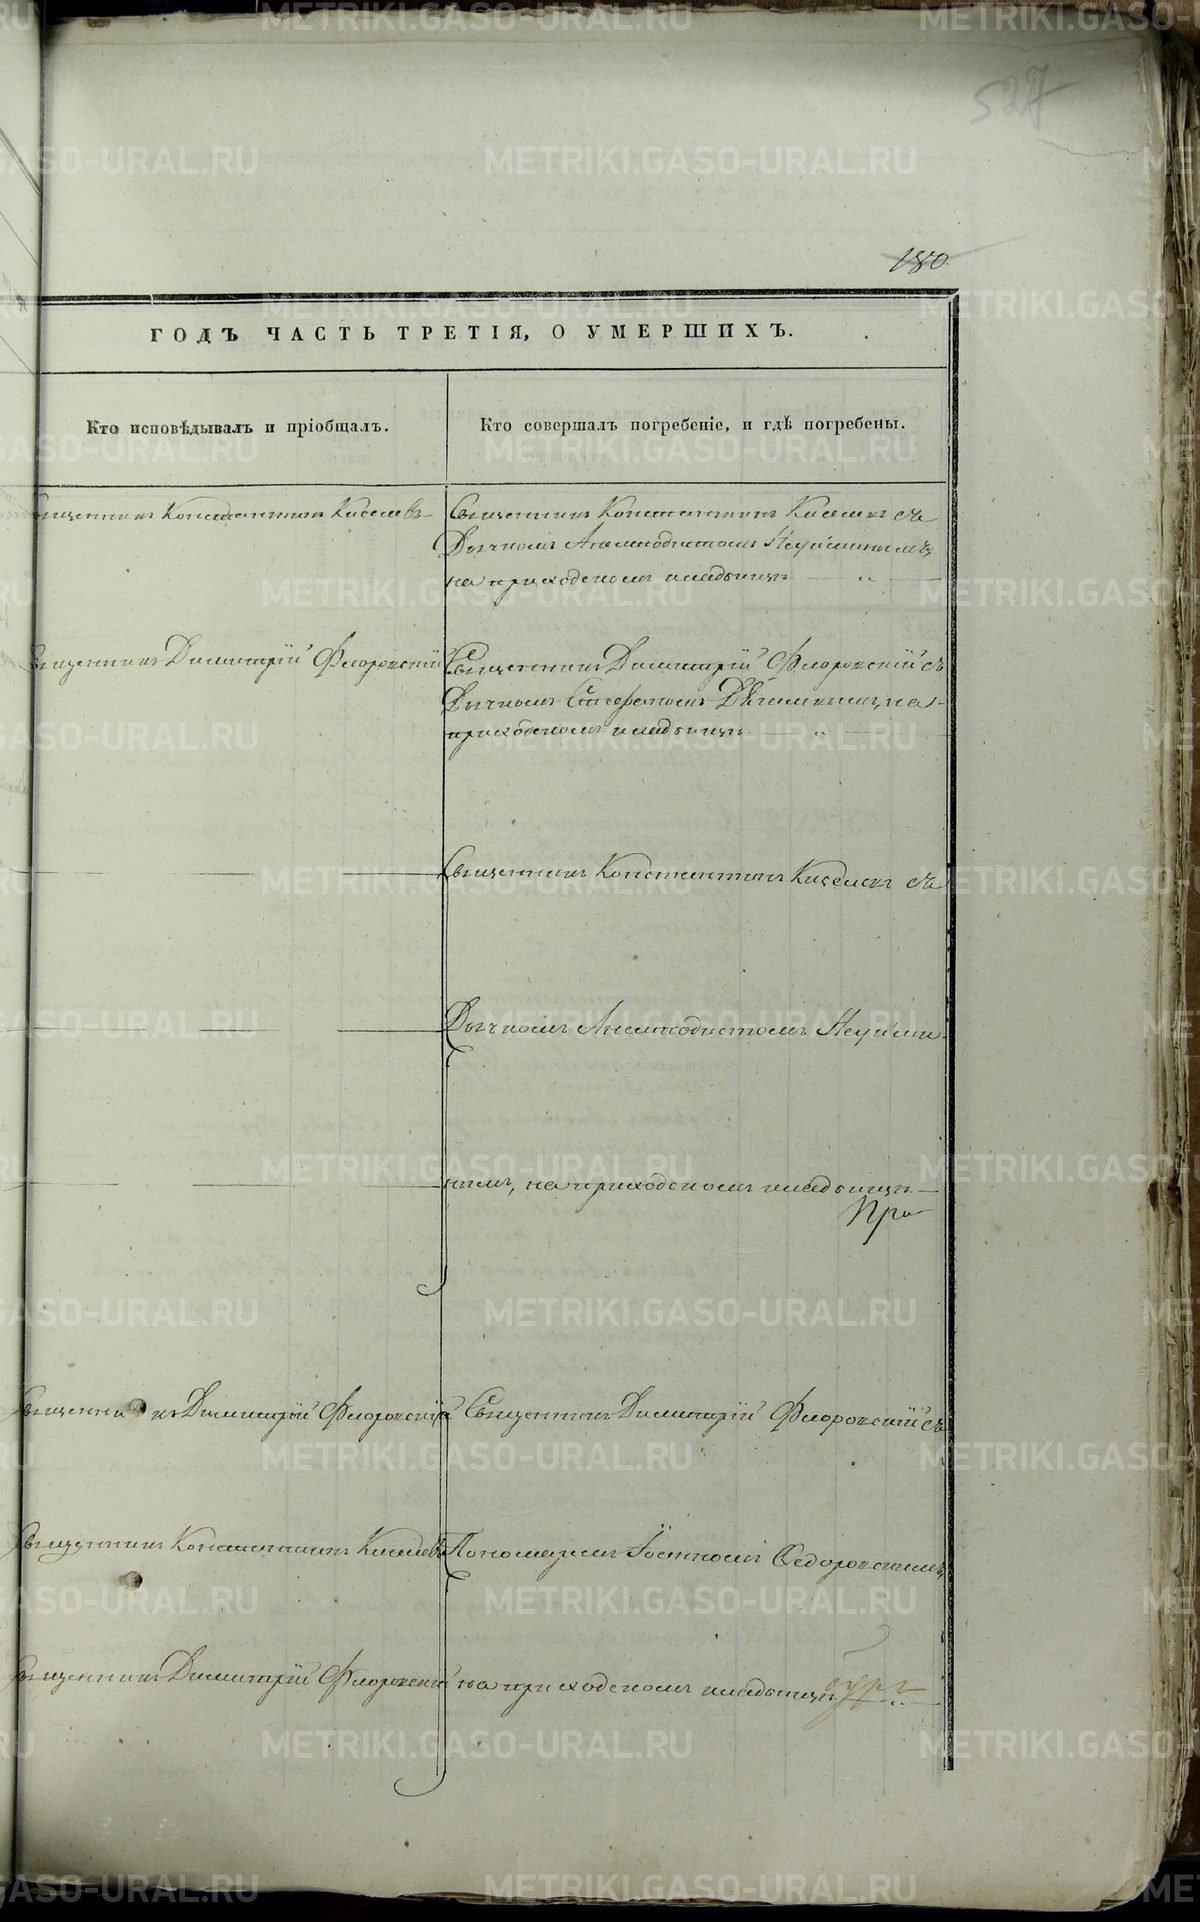 527
180
ГОДЪ ЧАСТЬ ТРЕТІЯ, О УМЕРШИХЪ.
Кто исповѣдывалъ и пріобщалъ.
Кто совершалъ погребеніе, и гдѣ погребены.
Священникъ Константинъ Киселевъ
Священникъ Константинъ Киселевъ съ
Дьячкомъ Анемподистомъ Неуйминымъ,
на приходскомъ кладбищѣ
Священникъ Димитрій Флоровскій
Священникъ Димитрій Флоровскій съ
Дьячкомъ Стефаномъ на
приходскомъ кладбищѣ
Священникъ Константинъ Киселевъ съ
Дьячкомъ Анемподистомъ Неуйми-
нымъ, на приходскомъ кладбищѣ
Священникъ Димитрій Флоровскій
Священникъ Димитрій Флоровскій съ
Священникъ Константинъ Киселевъ
Пономаремъ Іоанномъ Ѳедоровскимъ,
Священникъ Димитрій Флоровскій
на приходскомъ кладбищѣ
METRIKI.GASO-URAL.RU